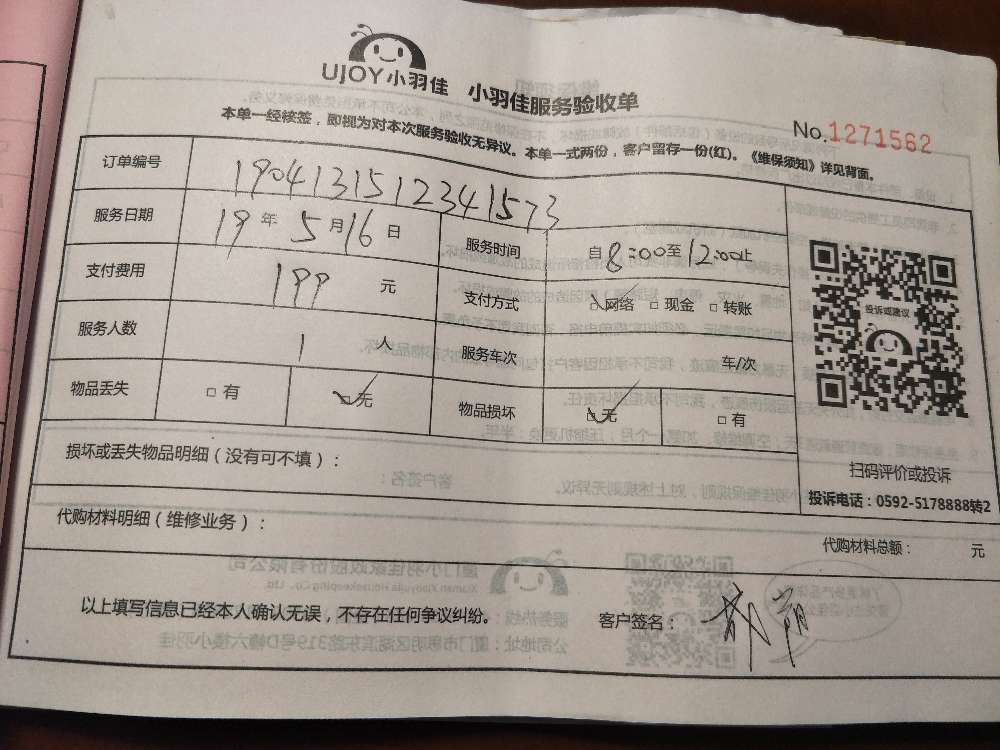 UJOY小羽佳 小羽佳服务验收单
No.1271562
本单一经核签，即视为对本次服务验收无异议。本单一式两份，客户留存一份(红)。《维保须知》详见背面。
订单编号 1904131512341573
服务日期 19年5月16日 服务时间 自8:00至12:00止
支付费用 199元 支付方式 网络 现金 转账
服务人数 1人 服务车次 车/次
物品丢失 有 无 物品损坏 无 有
投诉或建议
扫码评价或投诉
投诉电话：0592-5178888转2
损坏或丢失物品明细（没有可不填）：
代购材料明细（维修业务）：
代购材料总额： 元
以上填写信息已经本人确认无误，不存在任何争议纠纷。 客户签名：